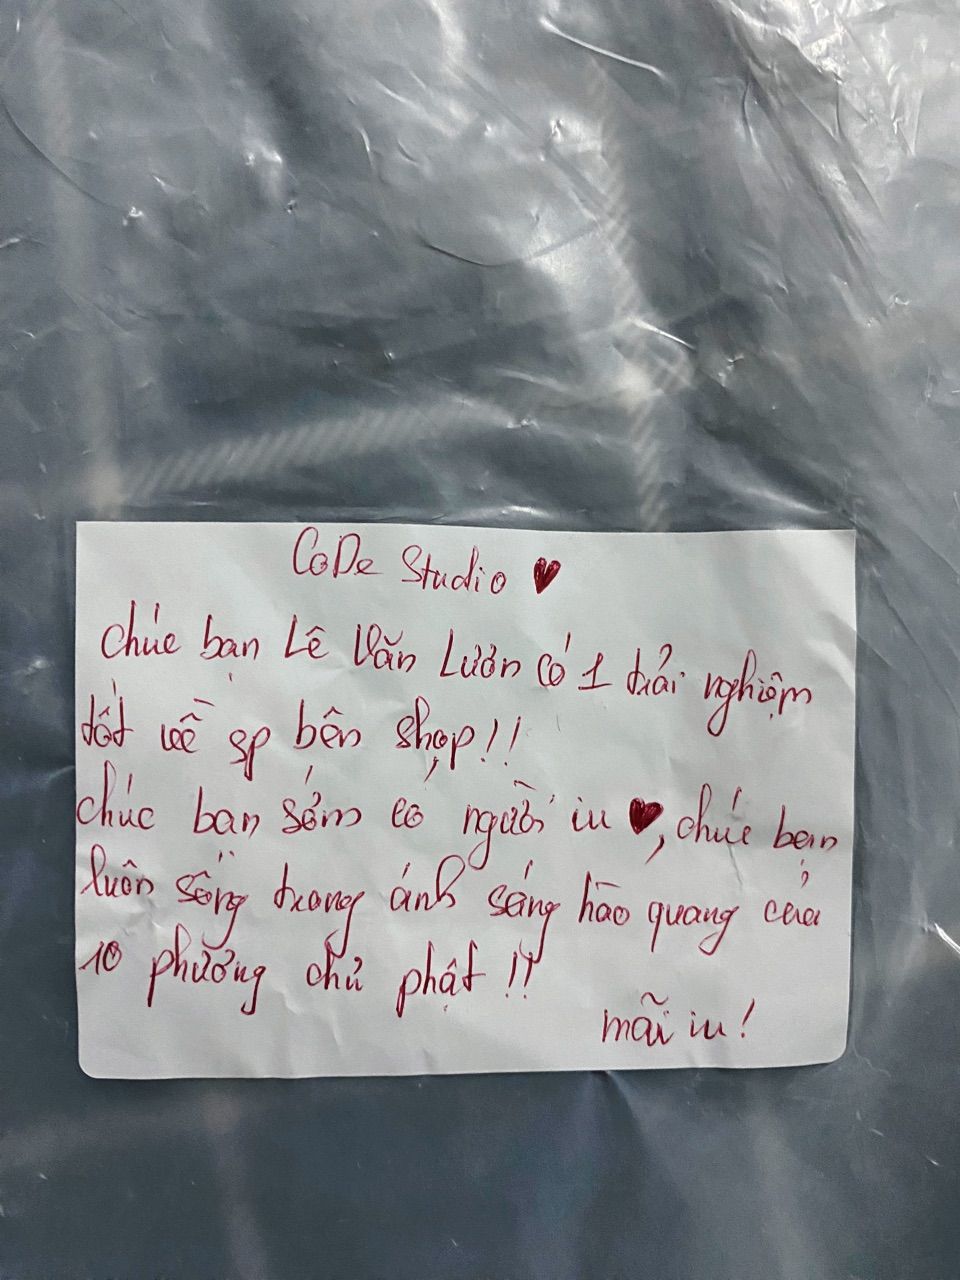 CoDe Studio ♥
chúc bạn Lê Văn Lươn có 1 trải nghiệm
tốt về sp bên shop!!
chúc bạn sớm có người iu ♥, chúc bạn
luôn sống trong ánh sáng hào quang của
10 phương chư phật !!
mãi iu!